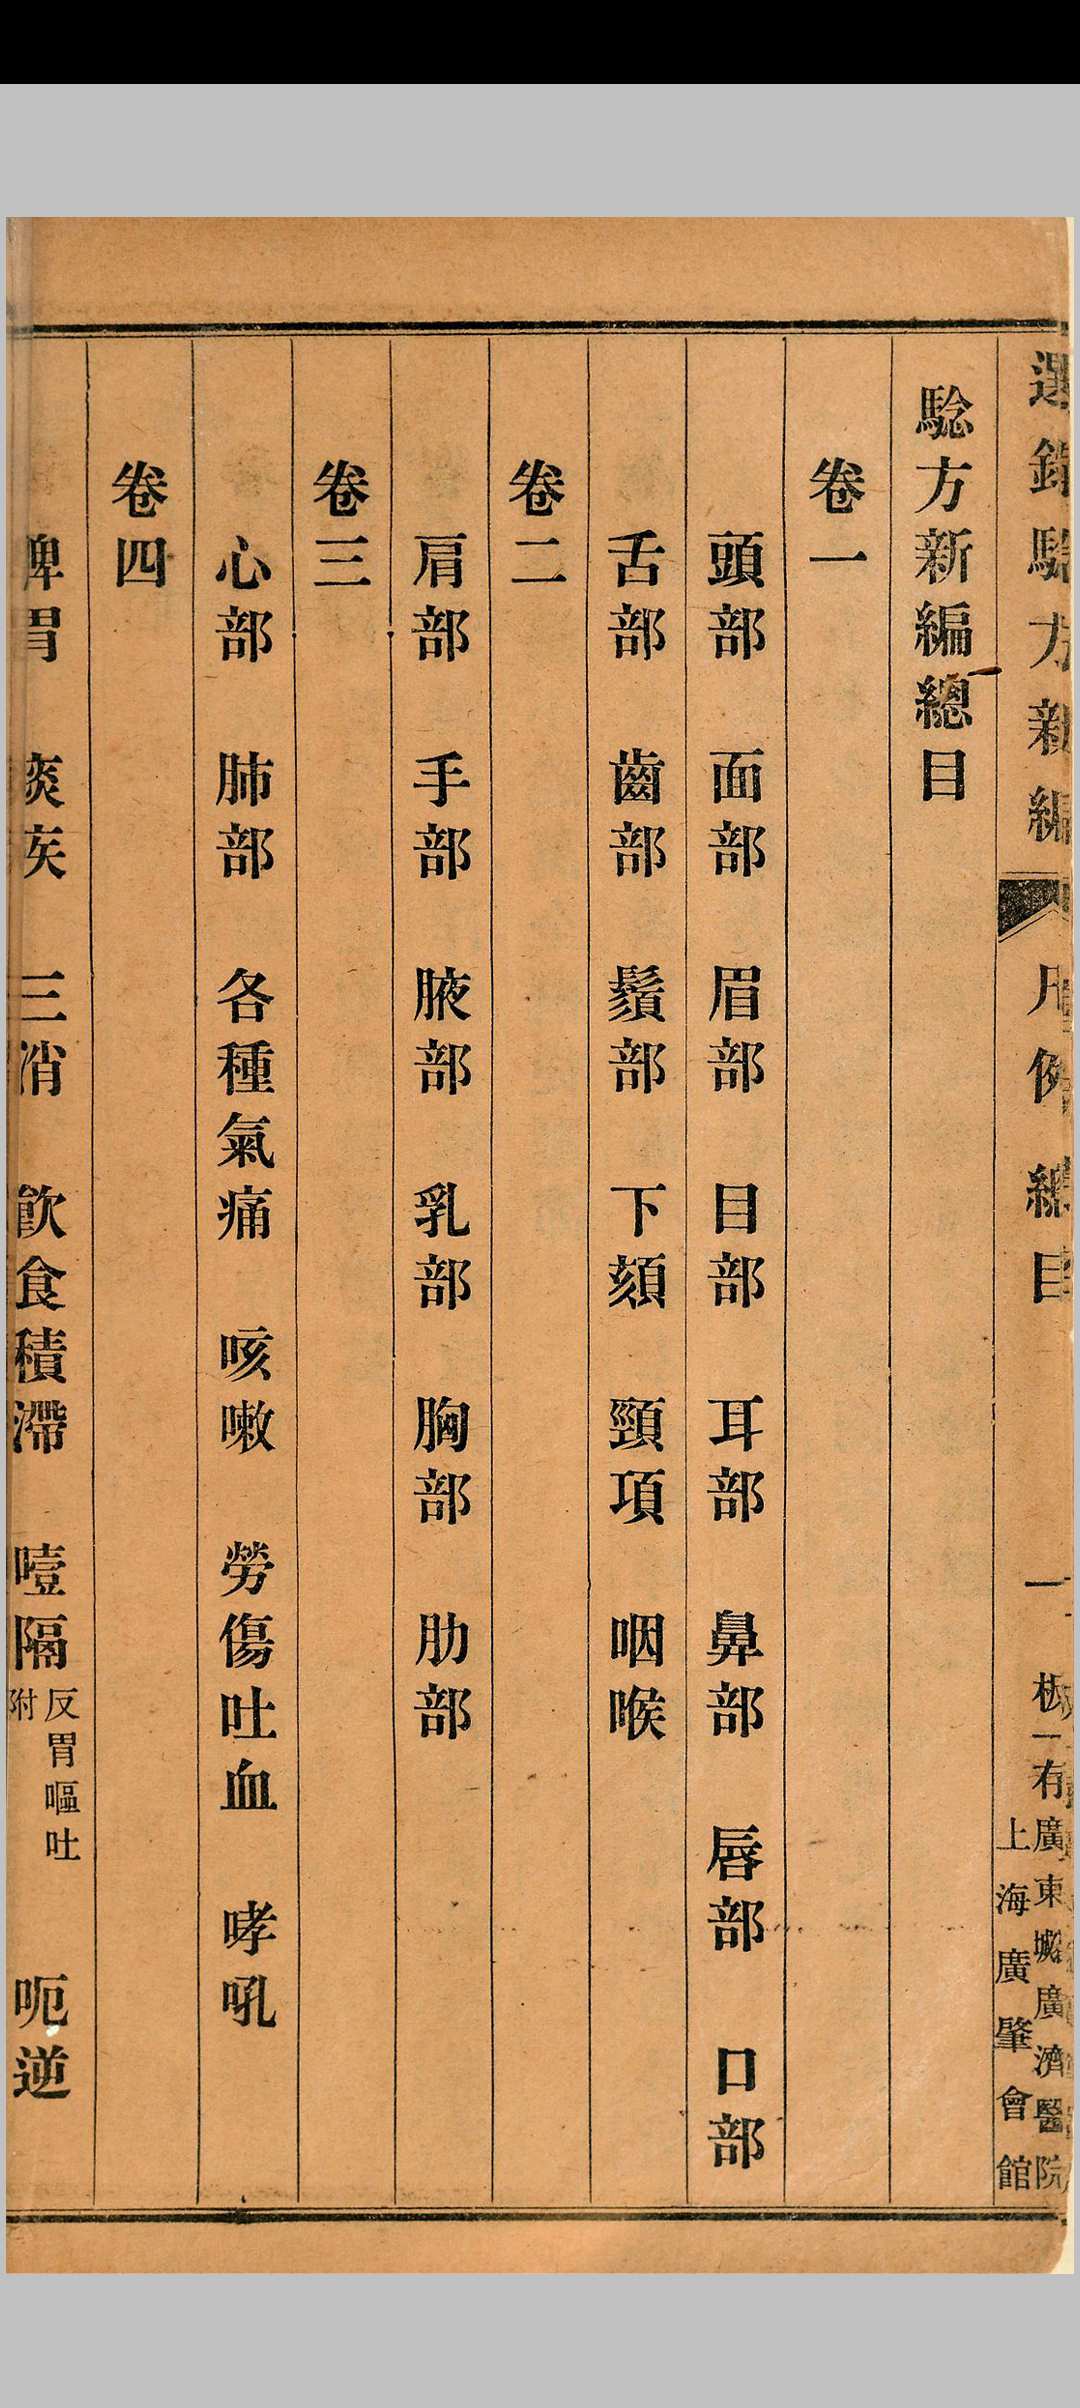 選錄騐方新編 凡例 總目 一 板一有廣東城廣濟醫院
上海廣肇會館
騐方新編總目
卷一
頭部 面部 眉部 目部 耳部 鼻部 唇部 口部
舌部 齒部 鬚部 下頦 頸項 咽喉
卷二
肩部 手部 腋部 乳部 胸部 肋部
卷三
心部 肺部 各種氣痛 咳嗽 勞傷吐血 哮吼
卷四
脾胃 痰疾 三消 飲食積滯 噎隔 反胃嘔吐附 呃逆